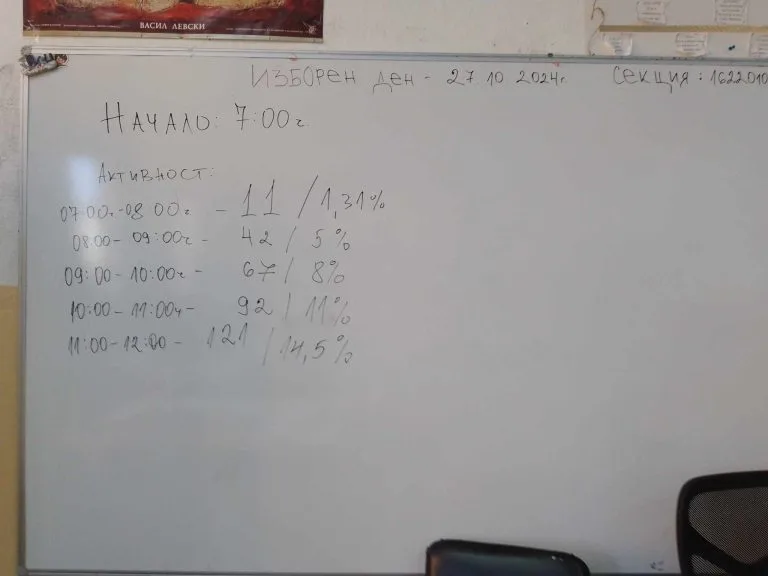 ВАСИЛ ЛЕВСКИ
ИЗБОРЕН ДЕН - 27 10 2024г. СЕКЦИЯ: 1622010
НАЧАЛО: 7:00ч.
АКТИВНОСТ:
07:00ч-08 00ч. - 11 / 1,31%
08:00 - 09:00ч - 42 / 5 %
09:00 - 10:00ч - 67 / 8%
10:00 - 11:00ч - 92 / 11%
11:00 - 12:00 - 121 / 14,5%